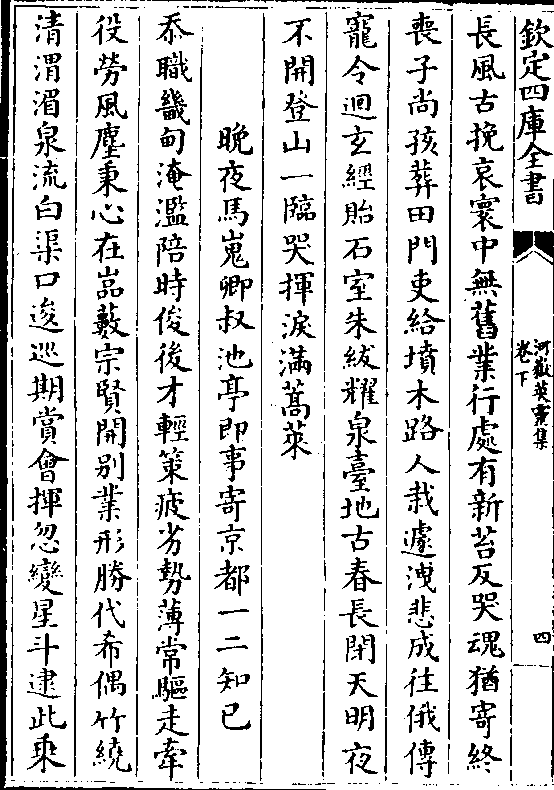 欽定四庫全書
河嶽英靈集
卷下
四
長風古挽哀寰中無舊業行處有新苔反哭魂猶寄終
喪子尚孩葬田門吏給墳木路人栽遽洩悲成往俄傳
寵令迴玄經貽石室朱紱耀泉臺地古春長閉天明夜
不開登山一臨哭揮淚滿蒿萊
晚夜馬嵬卿叔池亭即事寄京都一二知己
忝職畿甸淹濫陪時俊後才輕策疲劣勢薄常驅走牽
役勞風塵秉心在嵓藪宗賢開别業形勝代希偶竹繞
清渭湄泉流白渠口逡巡期賞會揮忽變星斗逮此乘